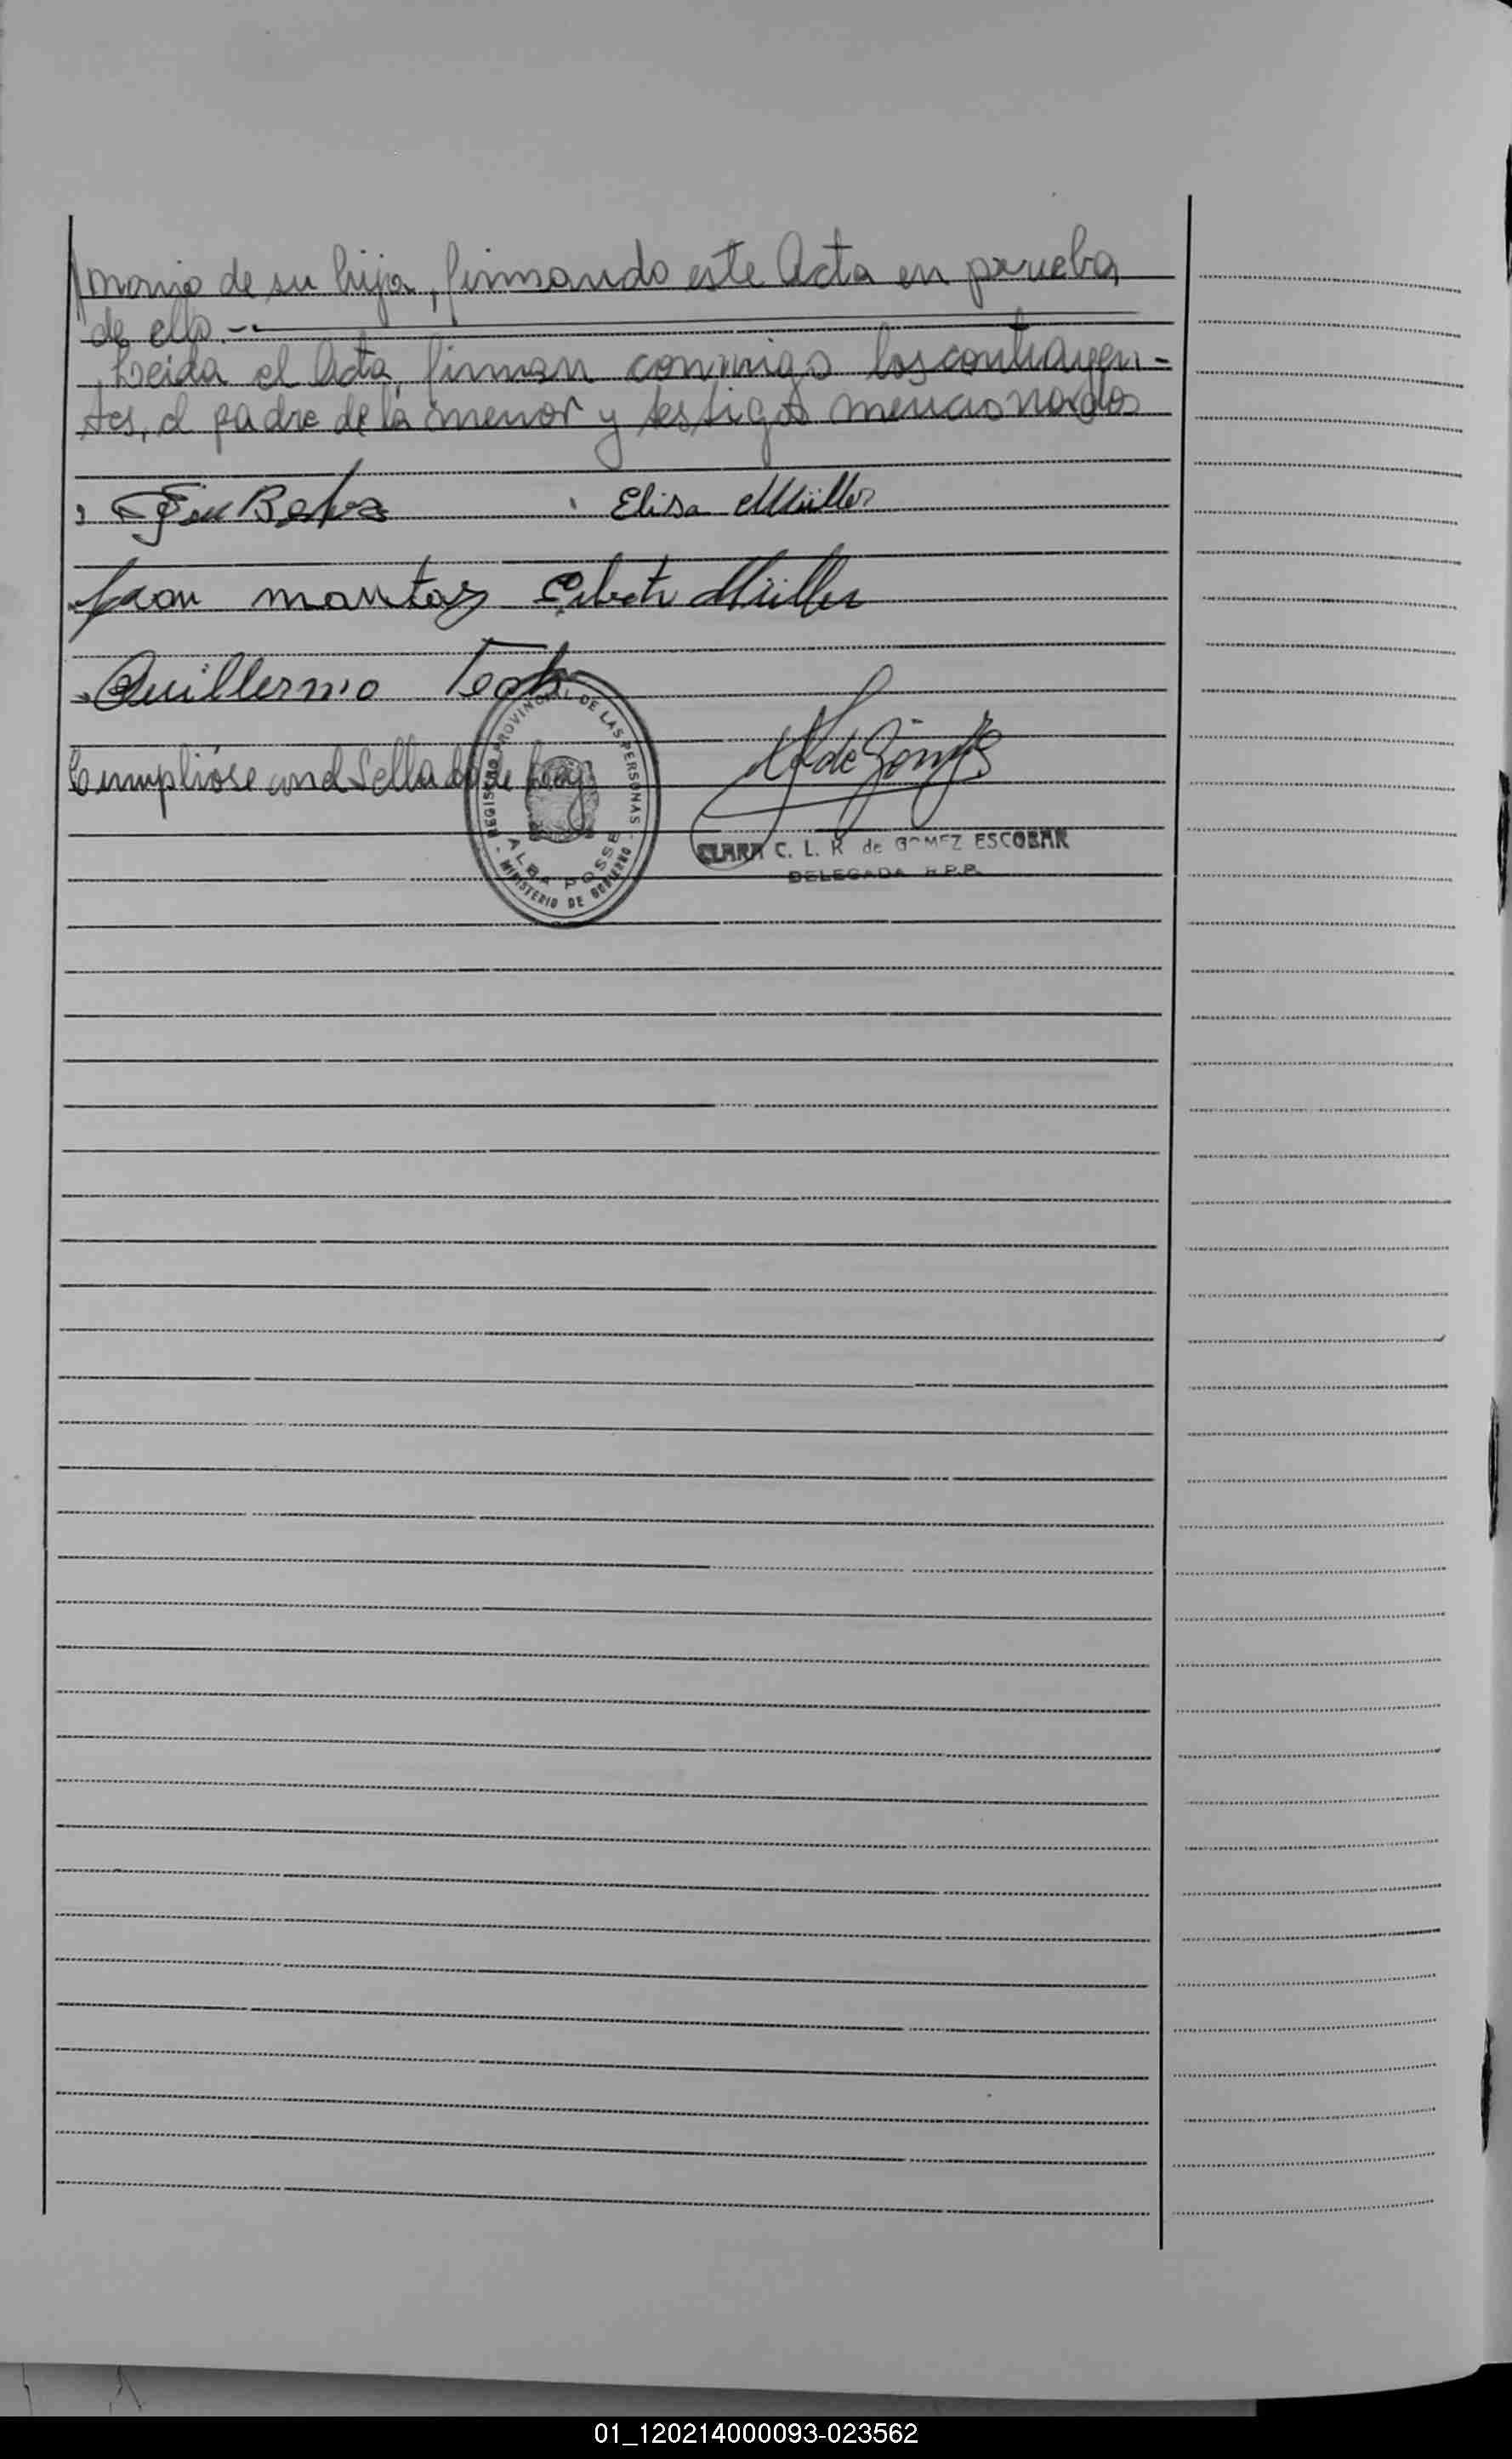 monio de su hija, firmando este Acta en prueba
de ello.-
Leida el Acta, firman conmigo los contrayen-
tes, el padre de la menor y testigos mencionados
Elisa Müller
Juan Müller
Guillermo
Cumplióse con el Sellado de Ley
REGISTRO PROVINCIAL DE LAS PERSONAS
ALBA POSSE
MINISTERIO DE GOBIERNO
CLARA C. L. R. de GOMEZ ESCOBAR
DELEGADA R.P.P.
01_120214000093-023562